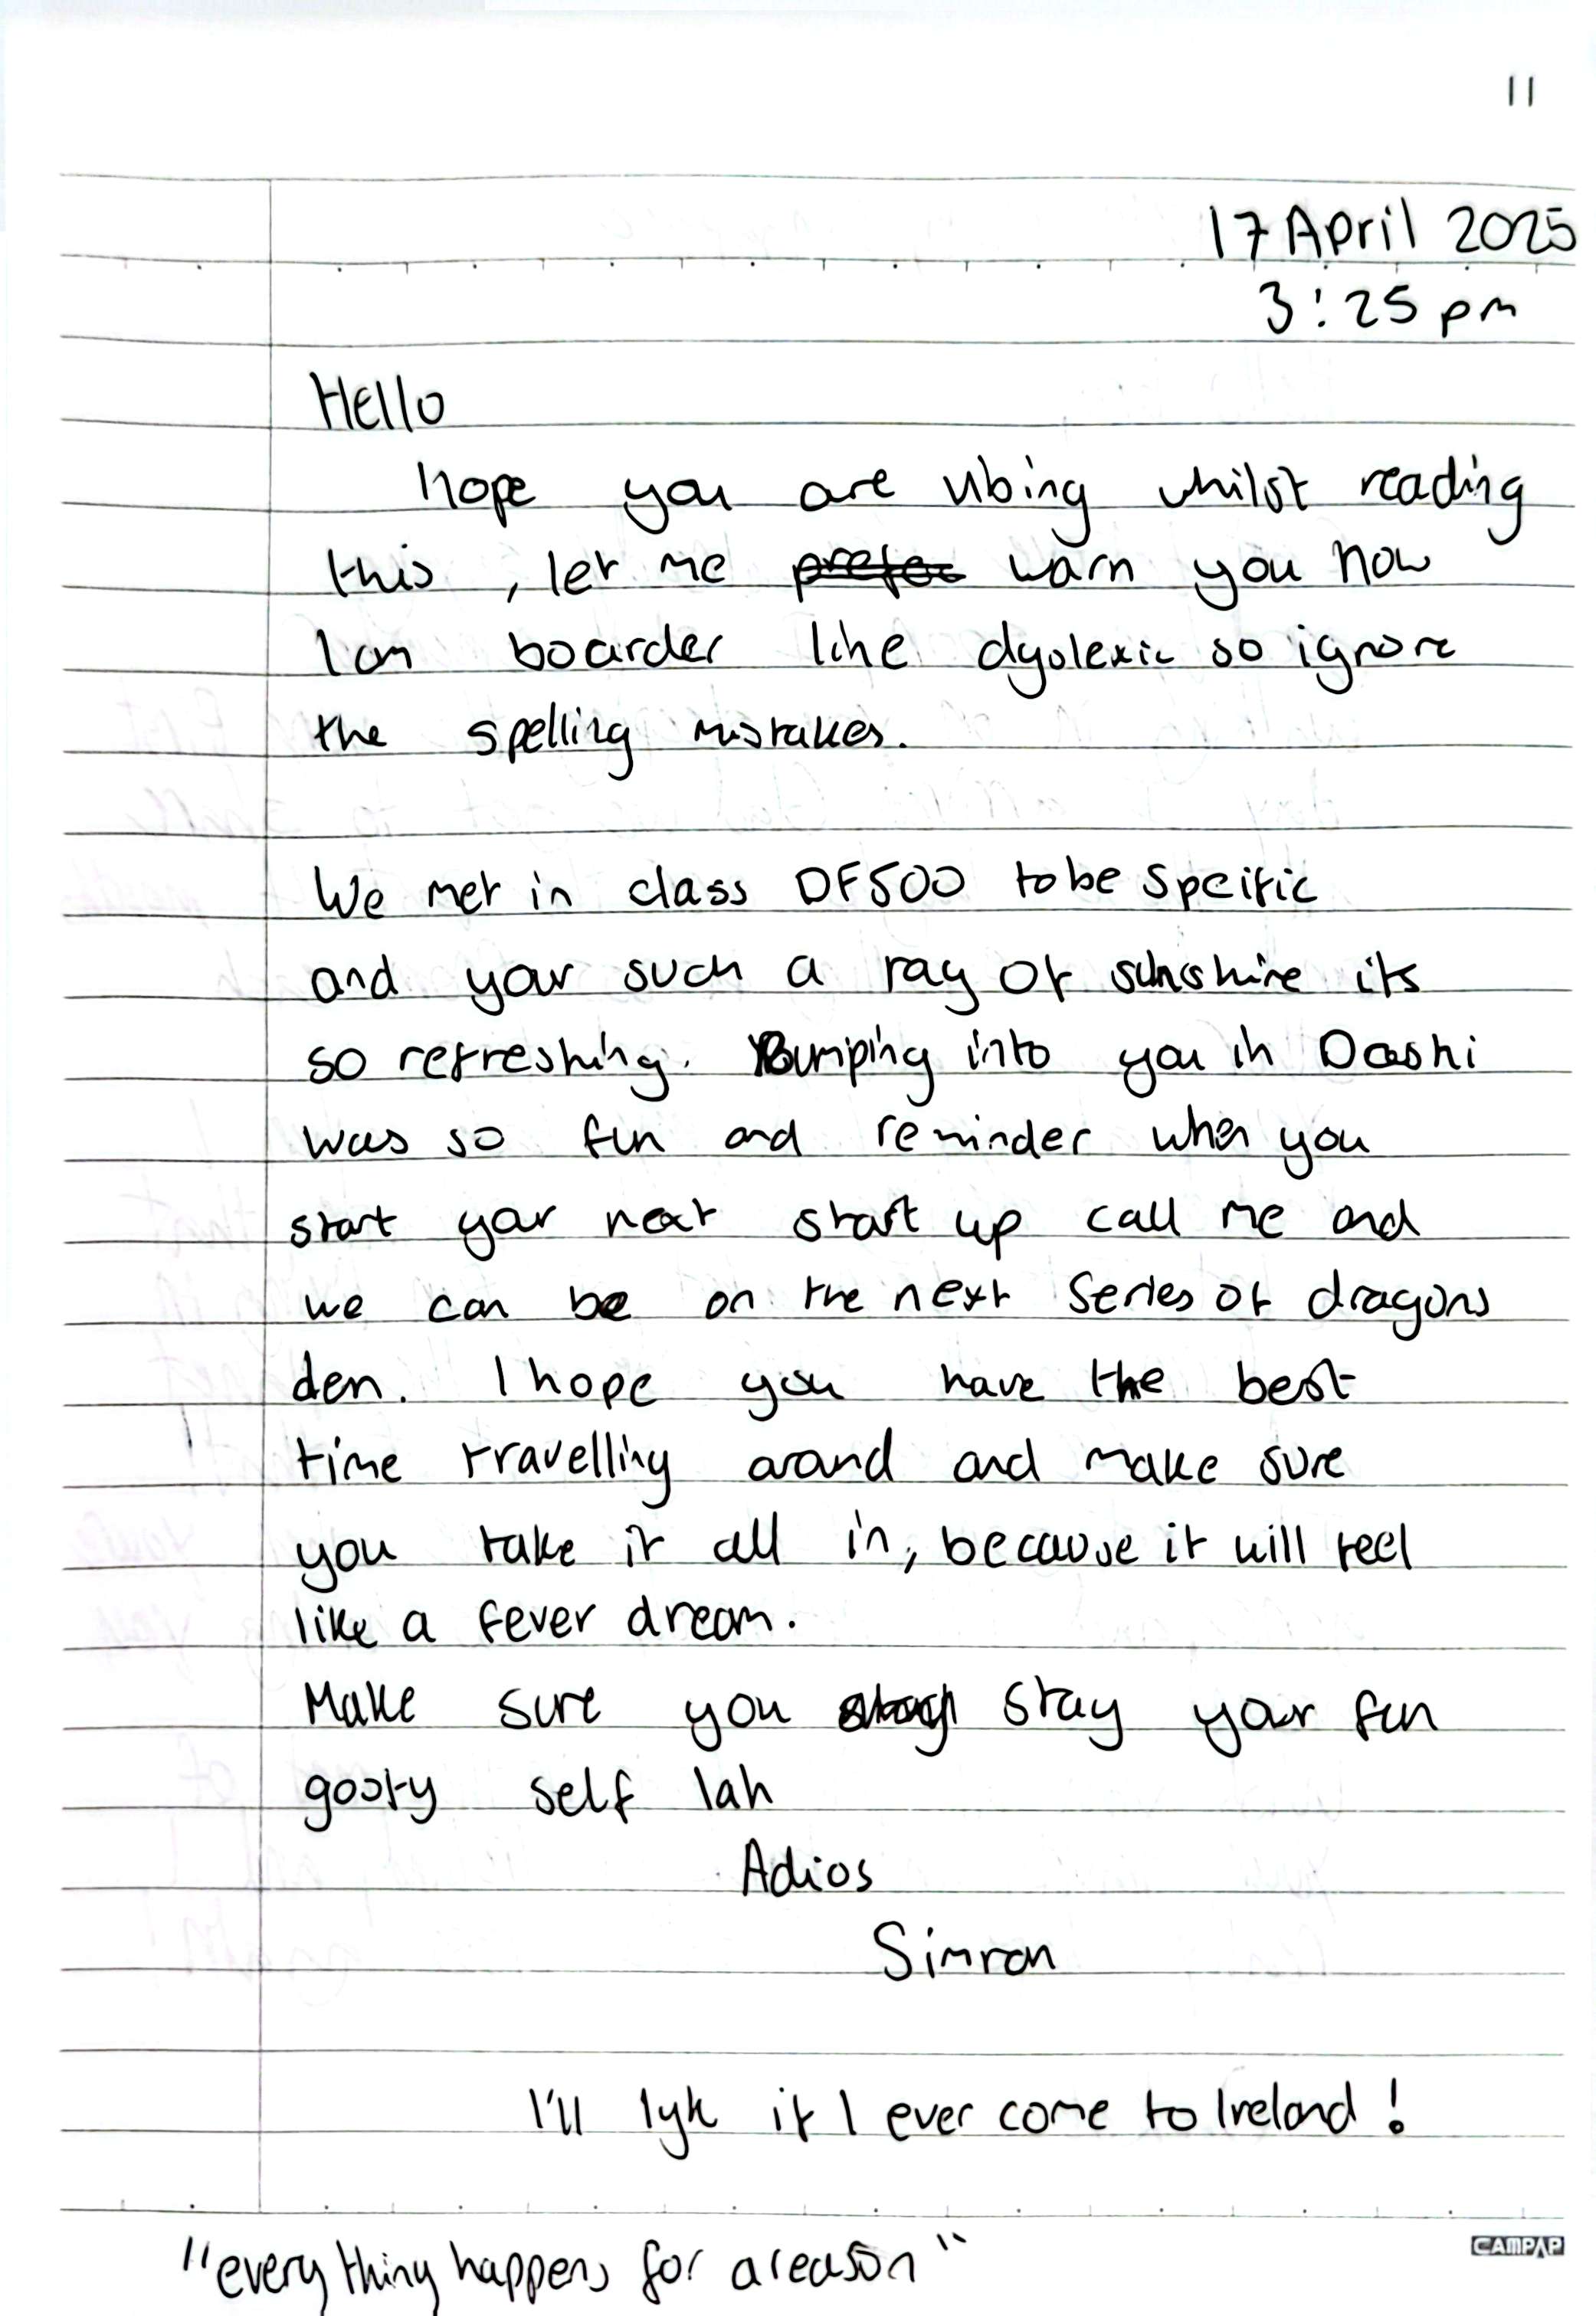 11
17 April 2025
3:25 pm
Hello
hope you are vibing whilst reading
this, let me warn you now
I am boarder line dyslexic so ignore
the spelling mistakes.
We met in class DF500 to be speific
and your such a ray of sunshine its
so refreshing. Bumping into you in Daoshi
was so fun and reminder when you
start your next start up call me and
we can be on the next series of dragons
den. I hope you have the best
time travelling around and make sure
you take it all in, because it will feel
like a fever dream.
Make sure you stay your fun
goofy self lah
Adios
Simran
I'll lyk if I ever come to Ireland!
"everything happens for a reason"
CAMPAP